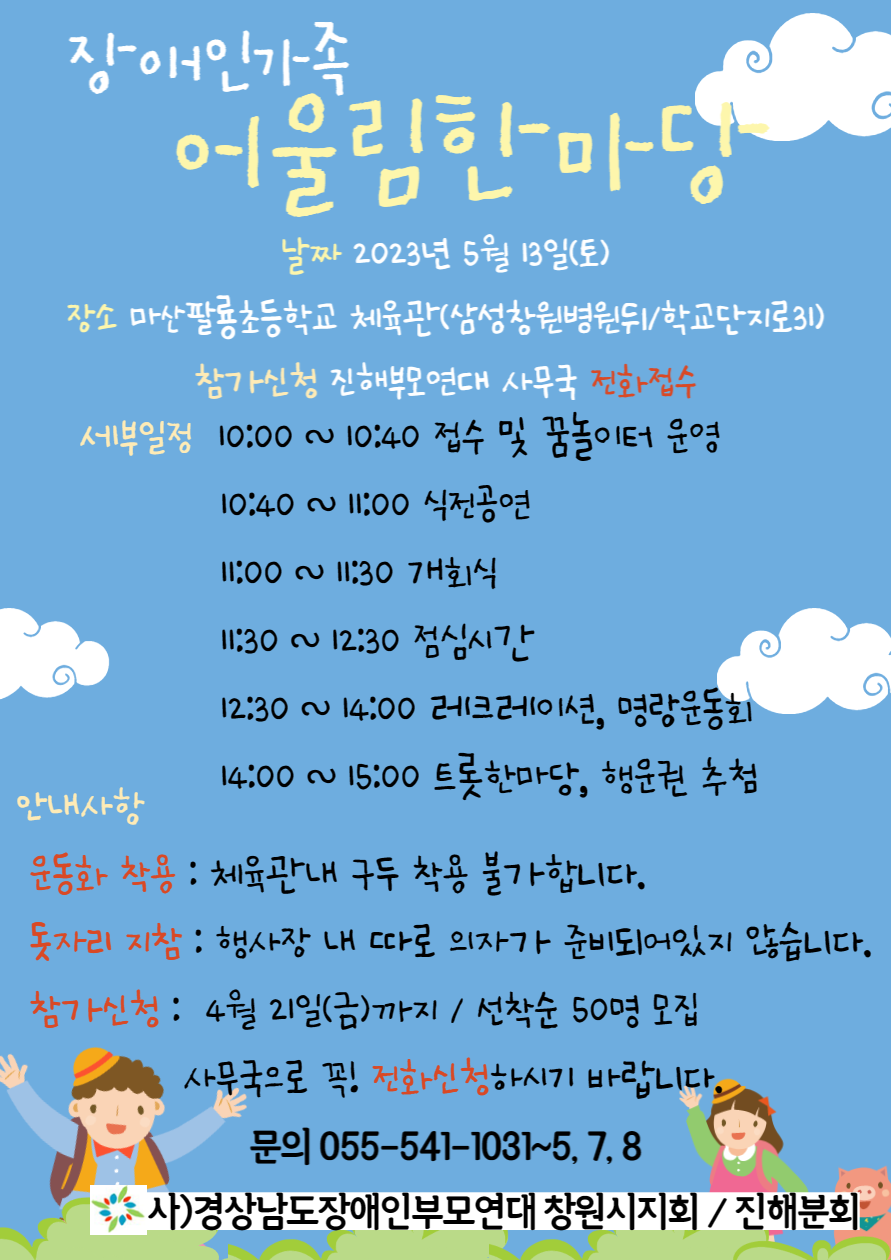 장애인가족
어울림한마당
날짜 2023년 5월 13일(토)
장소 마산팔룡초등학교 체육관(삼성창원병원뒤/학교단지로31)
참가신청 진해부모연대 사무국 전화접수
세부일정 10:00 ~ 10:40 접수 및 꿈놀이터 운영
10:40 ~ 11:00 식전공연
11:00 ~ 11:30 개회식
11:30 ~ 12:30 점심시간
12:30 ~ 14:00 레크레이션, 명랑운동회
14:00 ~ 15:00 트롯한마당, 행운권 추첨
안내사항
운동화 착용 : 체육관내 구두 착용 불가합니다.
돗자리 지참 : 행사장 내 따로 의자가 준비되어있지 않습니다.
참가신청 : 4월 21일(금)까지 / 선착순 50명 모집
사무국으로 꼭! 전화신청하시기 바랍니다.
문의 055-541-1031~5, 7, 8
사)경상남도장애인부모연대 창원시지회 / 진해분회